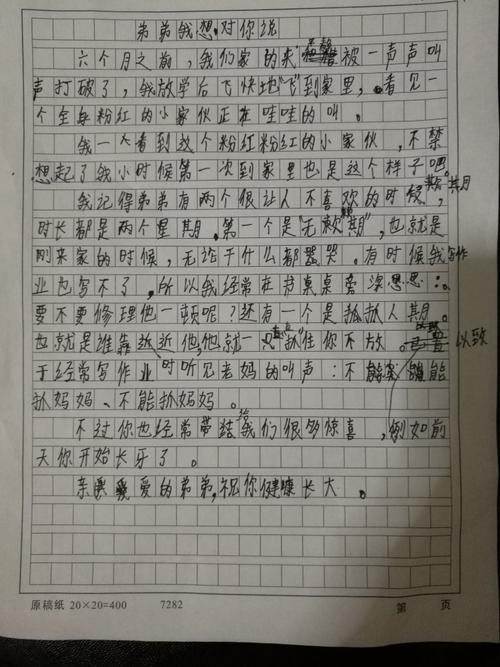 弟弟我想对你说
六个月之前，我们家的寂静被一声声叫
声打破了，我放学后飞快地"飞"到家里，看见一
个全身粉红的小家伙正在哇哇的叫。
我一看到这个粉红粉红的小家伙，不禁
想起了我小时候第一次到家里也是这个样子吧。
我记得弟弟有两个很让人不喜欢的时期，
时长都是两个星期。第一个是"无赖期"，也就是
刚来家的时候，无论干什么都要哭。有时候我写作
业也写不了，所以我经常在书桌旁
要不要修理他一顿呢？还有一个是抓抓人期。
也就是谁靠近他，他就一直抓住你不放。以致
于经常写作业时听见老妈的叫声：不能
抓妈妈、不能抓妈妈。
不过你也经常带给我们很多惊喜，例如前
天你开始长牙了。
亲爱的弟弟，祝你健康长大。
原稿纸 20×20=400 7282 第 页